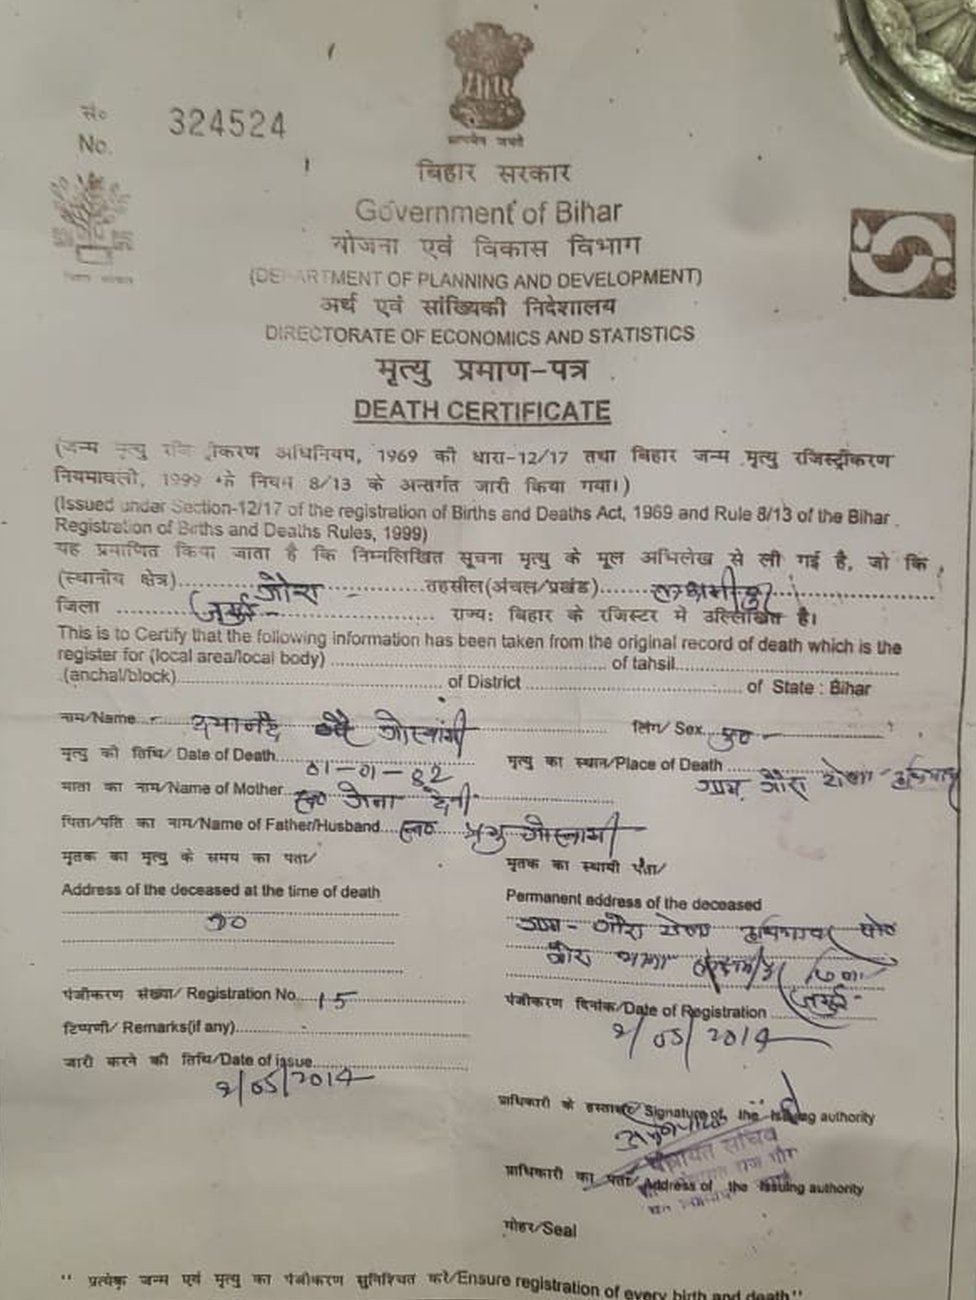 सं०
No. 324524
सत्यमेव जयते
बिहार सरकार
बिहार सरकार
Government of Bihar
योजना एवं विकास विभाग
(DEPARTMENT OF PLANNING AND DEVELOPMENT)
अर्थ एवं सांख्यिकी निदेशालय
DIRECTORATE OF ECONOMICS AND STATISTICS
मृत्यु प्रमाण-पत्र
DEATH CERTIFICATE
(जन्म मृत्यु रजिस्ट्रीकरण अधिनियम, 1969 की धारा-12/17 तथा बिहार जन्म मृत्यु रजिस्ट्रीकरण
नियमावली, 1999 के नियम 8/13 के अन्तर्गत जारी किया गया।)
(Issued under Section-12/17 of the registration of Births and Deaths Act, 1969 and Rule 8/13 of the Bihar
Registration of Births and Deaths Rules, 1999)
यह प्रमाणित किया जाता है कि निम्नलिखित सूचना मृत्यु के मूल अभिलेख से ली गई है, जो कि
(स्थानीय क्षेत्र) गौरा तहसील(अंचल/प्रखंड)
जिला जमुई राज्य: बिहार के रजिस्टर में उल्लिखित है।
This is to Certify that the following information has been taken from the original record of death which is the
register for (local area/local body) of tahsil
(anchal/block) of District of State : Bihar
नाम/Name गोस्वामी लिंग/ Sex पु०
मृत्यु की तिथि/ Date of Death 01-01-82 मृत्यु का स्थान/Place of Death ग्राम गौरा
माता का नाम/Name of Mother स्व० देवी
पिता/पति का नाम/Name of Father/Husband स्व० गोस्वामी
मृतक का मृत्यु के समय का पता/
Address of the deceased at the time of death
मृतक का स्थायी पता/
Permanent address of the deceased
ग्राम- गौरा
जिला
जमुई
पंजीकरण संख्या/ Registration No. 15
पंजीकरण दिनांक/Date of Registration
2/05/2014
टिप्पणी/ Remarks(if any)
जारी करने की तिथि/Date of issue
2/05/2014
प्राधिकारी के हस्ताक्षर/ Signature of the issuing authority
पंचायत सचिव
प्राधिकारी का पता/ Address of the issuing authority
मोहर/Seal
" प्रत्येक जन्म एवं मृत्यु का पंजीकरण सुनिश्चित करें/Ensure registration of every birth and death"